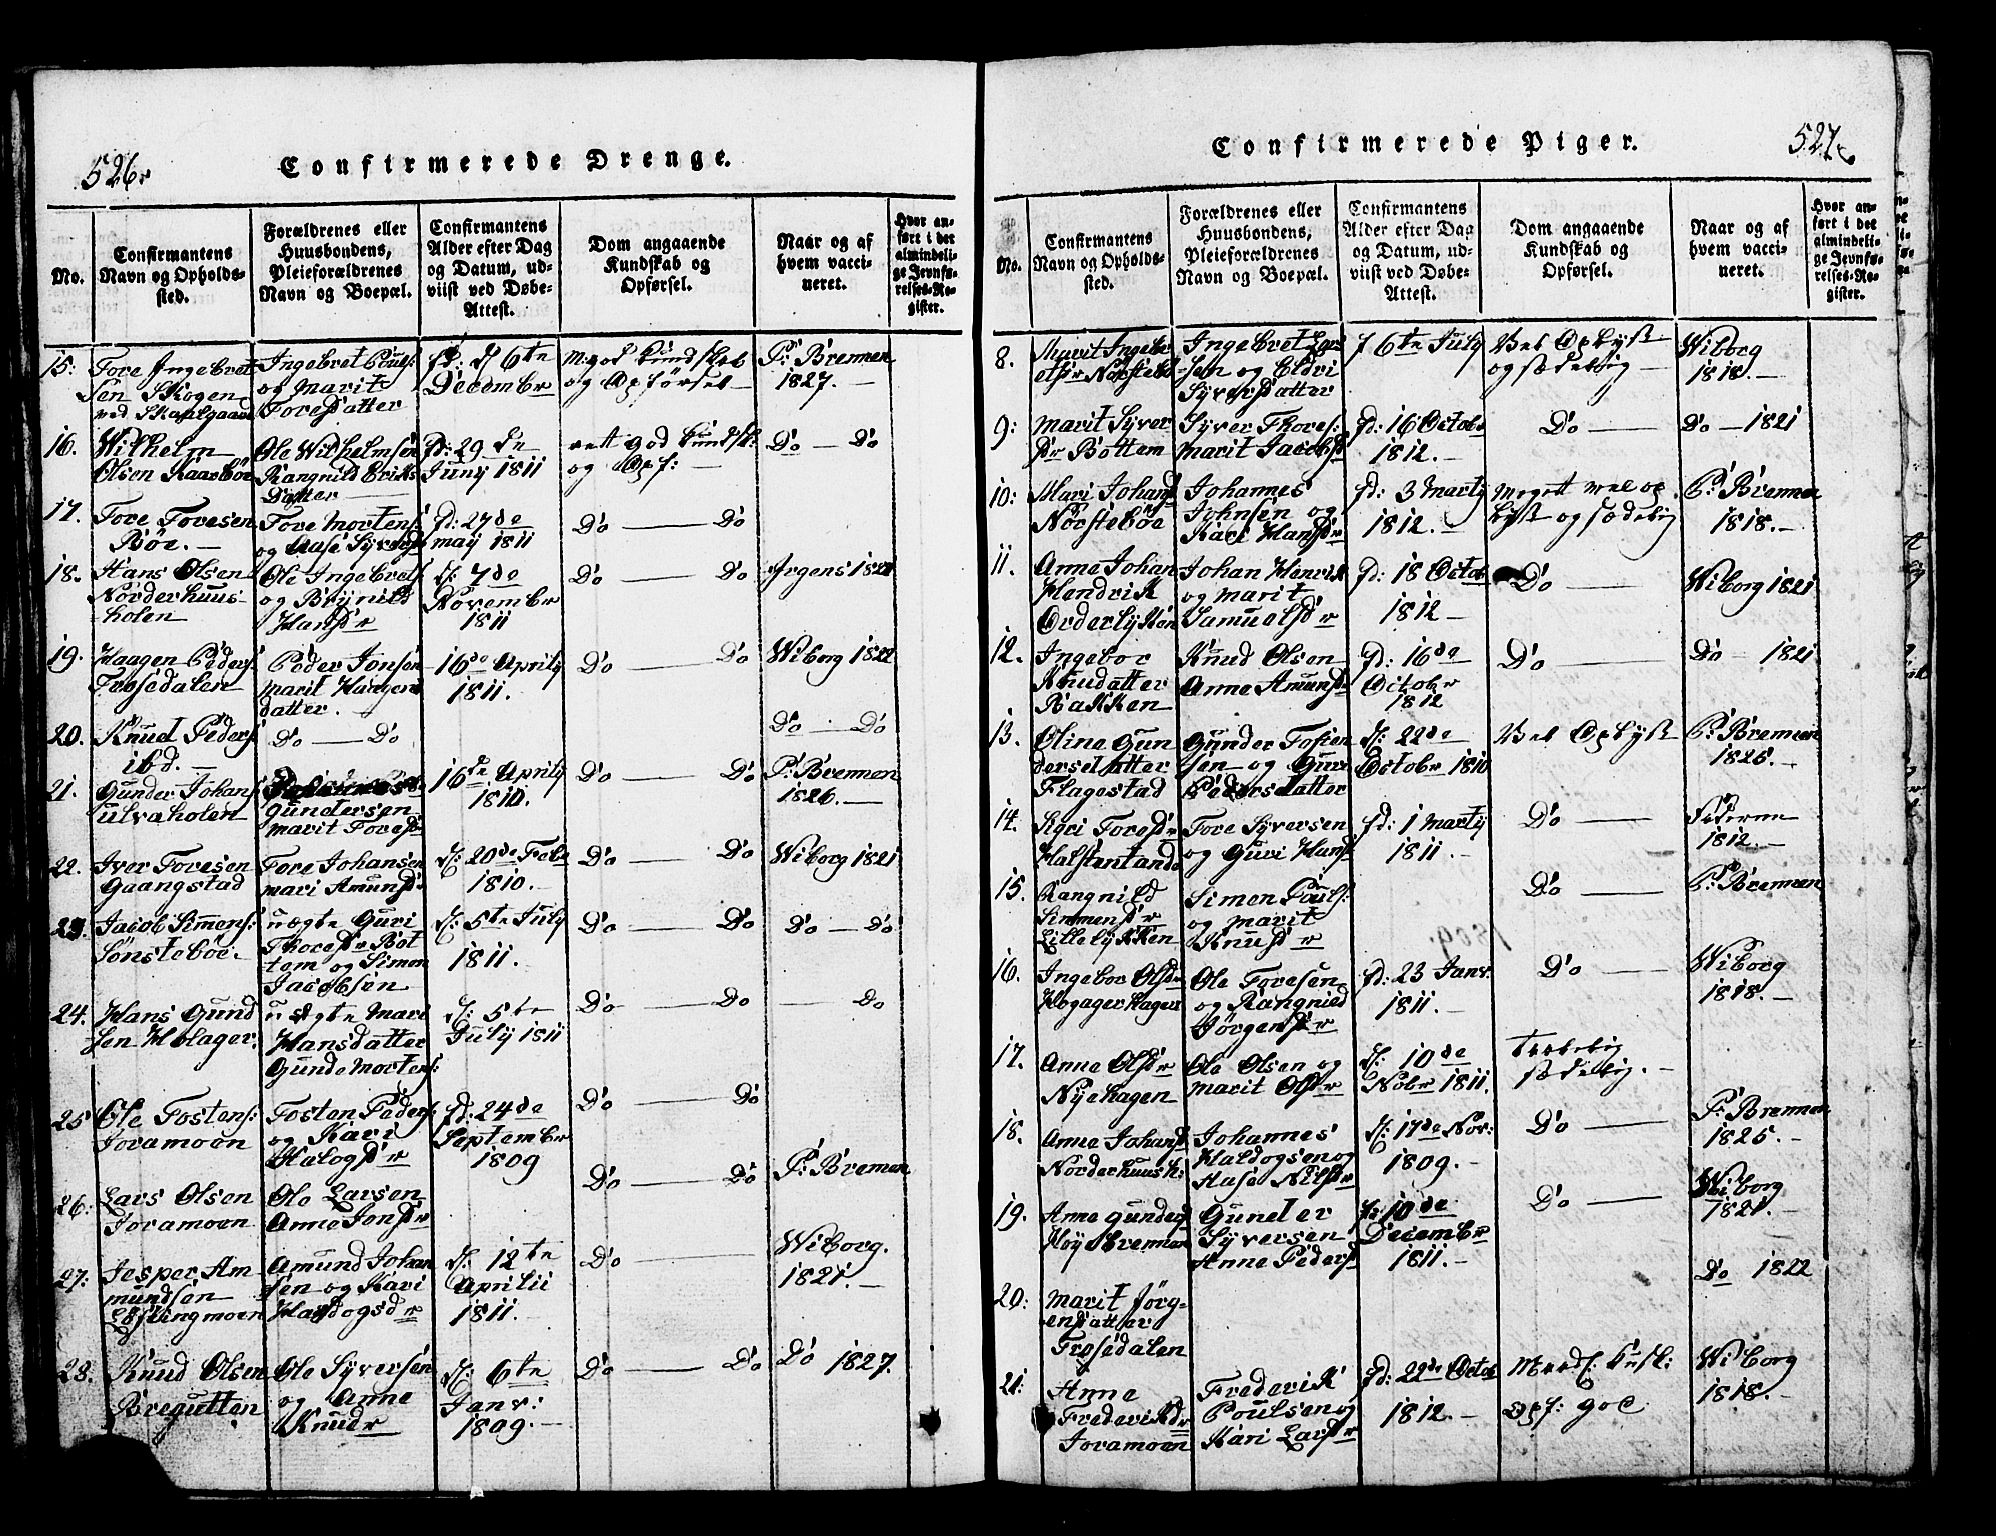 526.
Confirmerede Drenge.
No.
Confirmantens
Navn og Opholds-
sted.
Forældrenes eller
Huusbondens,
Pleieforældrenes
Navn og Boepæl.
Confirmantens
Alder efter Dag
og Datum, ud-
viist ved Døbe-
Attest.
Dom angaaende
Kundskab og
Opførsel.
Naar og af
hvem vacci-
neret.
Hvor an-
ført i det
almindeli-
ge Jevnfø-
relses-Re-
gister.
15. Tore Ingebret
sen Skogen
ved Skaalgaard
Ingebret Pouls:
og Marit
Toresdatter
fd: d 6te
December
m: god Kundskab
og Opførsel
P: Brennen
1827.
16. Wilhelm
Olsen Kaarbøe
Ole Wilhelmsen
Rangnild Eriks
Datter
fd: 29 de
Juny 1811
ret god Kundsk:
og Opf:
Do — Do
17. Tore Toresen
Bøe.
Tore Mortens:
og Aase Syversdr
fd: 27de
May 1811
Do — Do
18. Hans Olsen
Norderhuus-
holen
Ole Ingebrets
og Brynild
Hansdr
d: 7de
November
1811
Do — Do
Irgens 1821
19. Haagen Peders:
Frosedalen
Peder Jonsen
Marit Haagens
datter.
16de Aprily
1811.
Do — Do
Wiborg 1822
20. Knud Peders
ibd.
Do — Do
Do — Do
21. Gunder Johans
Ulvaholen
Gundersen
Marit Toresdr
16de Aprily
1810.
Do — Do
P: Brennen
1826.
22. Iver Toresen
Gaangstad
Tore Johansen
Mari Amundsdr
d: 20de Febr
1810.
Do — Do
Wiborg 1821
23. Jacob Simens:
Sønstebøe.
uægte Guri
Thoresdr Bot
tem og Simen
Jacobsen
d: 5te July
1811.
Do — Do
Do — Do
24. Hans Gund
sen Holager.
uægte Mari
Hansdatter
Gunde Mortens:
d: 5te
July 1811
Do — Do
— Do
25 Ole Tostens:
Joramoen
Tosten Peders
og Kari
Halogsdr
fd: 24de
September
1809
Do — Do
26. Lars Olsen
Joramoen
Ole Larsen
Anne Jonsdr
Do — Do
P: Bremen
27. Jesper Am
mundsen
Løslingmoen
Amund Johan
sen og Kari
Haldogsdr
d: 12te
Aprilii
1811.
Do
Wiborg.
1821.
28. Knud Olsen
Bregutten
Ole Syversen
og Anne
Knudr
d: 6te
Janr:
1809.
Do — Do
Do 1827.
Confirmerede Piger.
527.
No.
Confirmantens
Navn og Opholds-
sted.
Forældrenes eller
Huusbondens,
Pleieforældrenes
Navn og Boepæl.
Confirmantens
Alder efter Dag
og Datum, ud-
viist ved Døbe-
Attest.
Dom angaaende
Kundskab og
Opførsel.
Naar og af
hvem vacci-
neret.
Hvor an-
ført i det
almindeli-
ge Jevnfø-
relses-Re-
gister.
8. Marit Ingebr
etsdr Norstebø
Ingebret Lar
sen og Eldri
Syversdatter
f 6te July
Vel Oplyst
og sædelig
Wiborg
1818.
9: Marit Syver
sdr Bottem
Syver Thores:
Marit Jacobsd
fd: 16 Octobr
1812.
Do
Do — 1821
10: Mari Johansd
Norstebøe
Johannes
Johnsen og
Kari Hansdr
fd: 3 Marty
1812.
Meget vel op
lyst og sædelig
P: Brennen
1818.
11. Anne Johan
Hendrik
Orderlykken
Johan Henrik
og Marit
Samuelsdr
fd: 18 Octob
1812
Do
Wiborg 1821
12. Ingebor
Knudatter
Bakken
Knud Olsen
Anne Amunsdr
fd: 16de
Octobr
1812
Do
Do 1821
13. Oline Gun
dersdatter
Flagestad
Gunder Tosten
sen og Guri
Pedersdatter
d: 22de
Octobr 1810
Vel Oplyst
P: Brennen
1825.
14. Sigri Toresdr
Halstenland
Tore Syversen
og Guri Hansd
fd: 1 Marty
1811.
Do
1812.
15. Rangnild
Simmensdr
Lillelykken
Simon Pouls:
og Marit
Knudsdr
Do
P: Brennen
16. Ingebor Olsdr
Hogager Hagen
Ole Toresen
og Rangnild
Jørgensdr
fd: 23 Janr.
1811.
Do
Wiborg
1818.
17. Anne Olsdr
Nyehagen
Ole Olsen og
Marit Olsdr
d: 10de
Nobr 1811.
sædelig.
18. Anne Johansd
Norderhuush:
Johannes
Haldogsen og
Aase Nilsdr
d: 17de Nov:
1809.
Do
P: Brennen
1825.
19. Anne Gundersd
Høybrennen
Gunder
Syversen
Anne Pedersd
10de
December
1811.
Do
Wiborg
1821.
20: Marit Jørg-
ensdatter
Frosedalen
Do 1822
21: Anne
Frederiksdr
Joramoen
Frederik
Poulsen og
Kari Larsdr
fd: 22de Octob
1812.
Opf: god
Wiborg
1818.